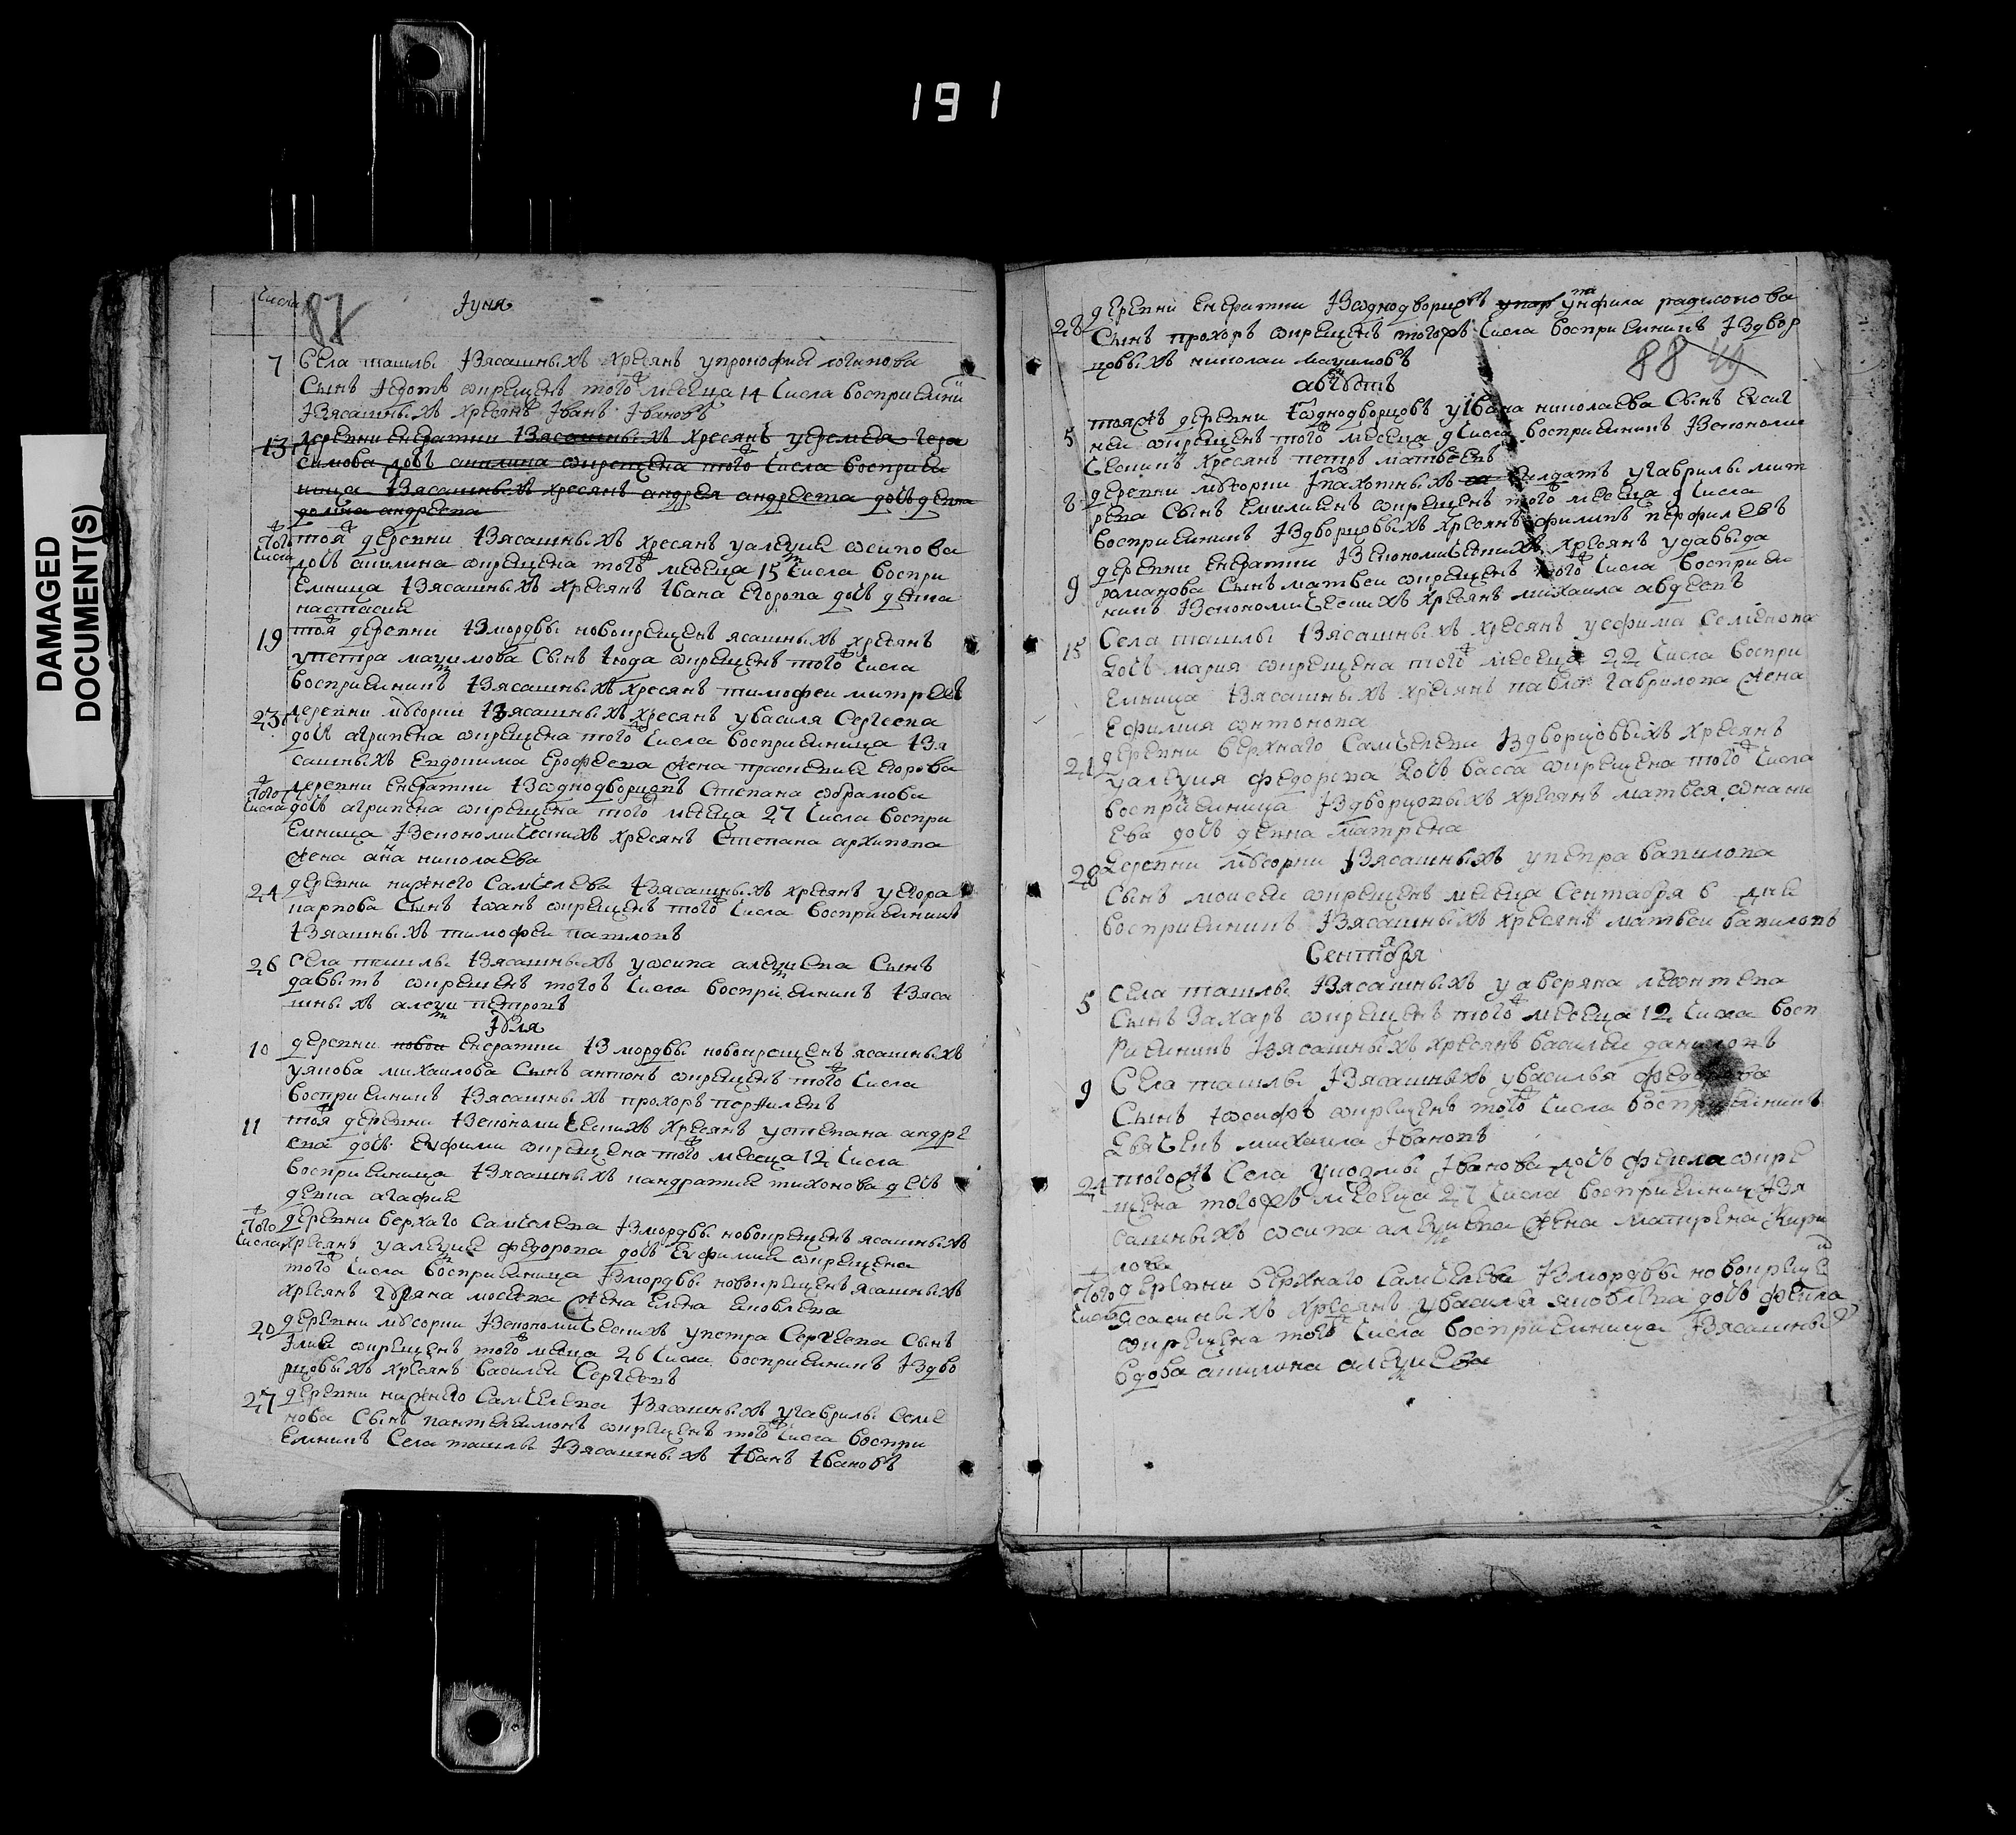 191
DAMAGED
DOCUMENT(S)
числа
87
Іуня
7 Села ташлы Ізясашныхъ хресянъ упрокофия логинова
Сынъ Ѳедотъ окрещенъ того месеца 14 числа восприемни
Ізясашныхъ хресянъ Іванъ Івановъ
13 деревни екератки Ізясашныхъ хресянъ уеремея гера
симова дочь акилина окрещена того числа восприем
ница Ізясашныхъ хресянъ андрея андреева дочь девка
андреева
того числа тоя деревни Ізясашныхъ хресянъ уалеѯия осипова
дочь акилина окрещена того месеца 15 числа воспри
емница Ізясашныхъ хресянъ Івана егорова дочь девка
настасия
19 тоя деревни Ізмордвы новокрещенъ ясашныхъ хресянъ
упетра маѯимова Сынъ Іюда окрещенъ того числа
восприемникъ Ізясашныхъ хресянъ тимофеи митревъ
23 деревни Ізясашныхъ хресянъ увасиля Сергеева
дочь агрипена окрещена того числа восприемница Ізя
сашныхъ евдокима ерофеева жена праскевия егорова
того числа деревни екератки Ізоднодворцовъ Степана обрамова
дочь агрипена окрещена того месеца 27 числа воспри
емница Ізекономическихъ хресянъ Степана архипова
жена анна николаева
24 деревни нижнего Самчелева Ізясашныхъ хресянъ уегора
карпова Сынъ Іоанъ окрещенъ того числа восприемникъ
Ізясашныхъ тимофеи павловъ
26 Села ташлы Ізясашныхъ уосипа алеѯиева Сынъ
давыдъ окрещенъ того числа восприемникъ Ізяса
шныхъ алеѯи петровъ
Іюля
10 деревни новои екератки Ізмордвы новокрещенъ ясашныхъ
уякова михаилова Сынъ антонъ окрещенъ того числа
восприемникъ Ізясашныхъ прохоръ
11 тоя деревни Ізекономическихъ хресянъ устепана андре
ева дочь Еуфимия окрещена того месеца 12 числа
восприемница Ізясашныхъ кандратия тихонова дочь
девка агафия
того числа деревни верхаго Самчелева Ізмордвы новокрещенъ ясашныхъ
хресянъ уалеѯия федорова дочь Еуфимия окрещена
того числа восприемница Ізмордвы новокрещенъ ясашныхъ
хресянъ гурьяна мосеева жена Елена яковлева
20 деревни Ізекономическихъ упетра Сергеева Сынъ
Ілия окрещенъ того месеца 26 числа восприемникъ Іздво
рцовыхъ хресянъ василеи Сергеевъ
27 деревни нижнего Самчелева Ізясашныхъ угаврилы Семе
нова Сынъ пантелеимонъ окрещенъ того числа воспри
емникъ Села ташлы Ізясашныхъ Іванъ Івановъ
28 деревни екератки Ізоднодворцовъ радионова
Сынъ прохоръ окрещенъ тогожъ числа восприемникъ Іздвор
цовыхъ николаи маѯимовъ
88
августъ
5 тояжъ деревни Ізоднодворцовъ уІвана николаева Сынъ Евсиг
неи окрещенъ того месеца 9 числа восприемникъ Ізекономи
ческихъ хресянъ петръ матвеевъ
8 деревни Іпахотныхъ Салдатъ угаврилы мит
рева Сынъ Емилиенъ окрещенъ того месеца 9 числа
восприемникъ Іздворцовыхъ хресянъ филипъ перфилевъ
9 деревни екератки Ізекономическихъ хресянъ удавыда
романова Сынъ матвеи окрещенъ того числа восприем
никъ Ізекономическихъ хресянъ михаила авдеевъ
15 Села ташлы Ізясашныхъ хресянъ уефима Семенова
дочь мария окрещена того месеца 22 числа воспри
емница Ізясашныхъ хресянъ павла гаврилова жена
Ефимия онтонова
21 деревни верхнаго Самчелеви Іздворцовыхъ хресянъ
уалеѯия федорова дочь васса окрещена того числа
восприемница Іздворцовыхъ хресянъ матвея онани
ева дочь девка матрена
28 деревни Ізясашныхъ упетра вавилова
Сынъ моисеи окрещенъ месеца Сентября 6 дня
восприемникъ Ізясашныхъ хресянъ матвеи вавиловъ
Сентября
5 Села ташлы Ізясашныхъ уаверяна леонтева
Сынъ Захаръ окрещенъ того месеца 12 числа восп
риемникъ Ізясашныхъ хресянъ василеи даниловъ
9 Села ташлы Ізясашныхъ увасилья
Сынъ Іосифъ окрещенъ того числа восприемникъ
дьячекъ михаила Івановъ
24 тогожъ Села Іванова дочь фекла окре
щена тогожъ месеца 27 числа восприемница Ізя
сашныхъ осипа алеѯиева жена матрена Кири
лова
того числа деревни верхнаго Самчелева Ізмордвы новокреще
ясашныхъ хресянъ увасиля яковлева дочь фекла
окрещена того числа восприемница Ізясашны
вдова акилина алеѯиева